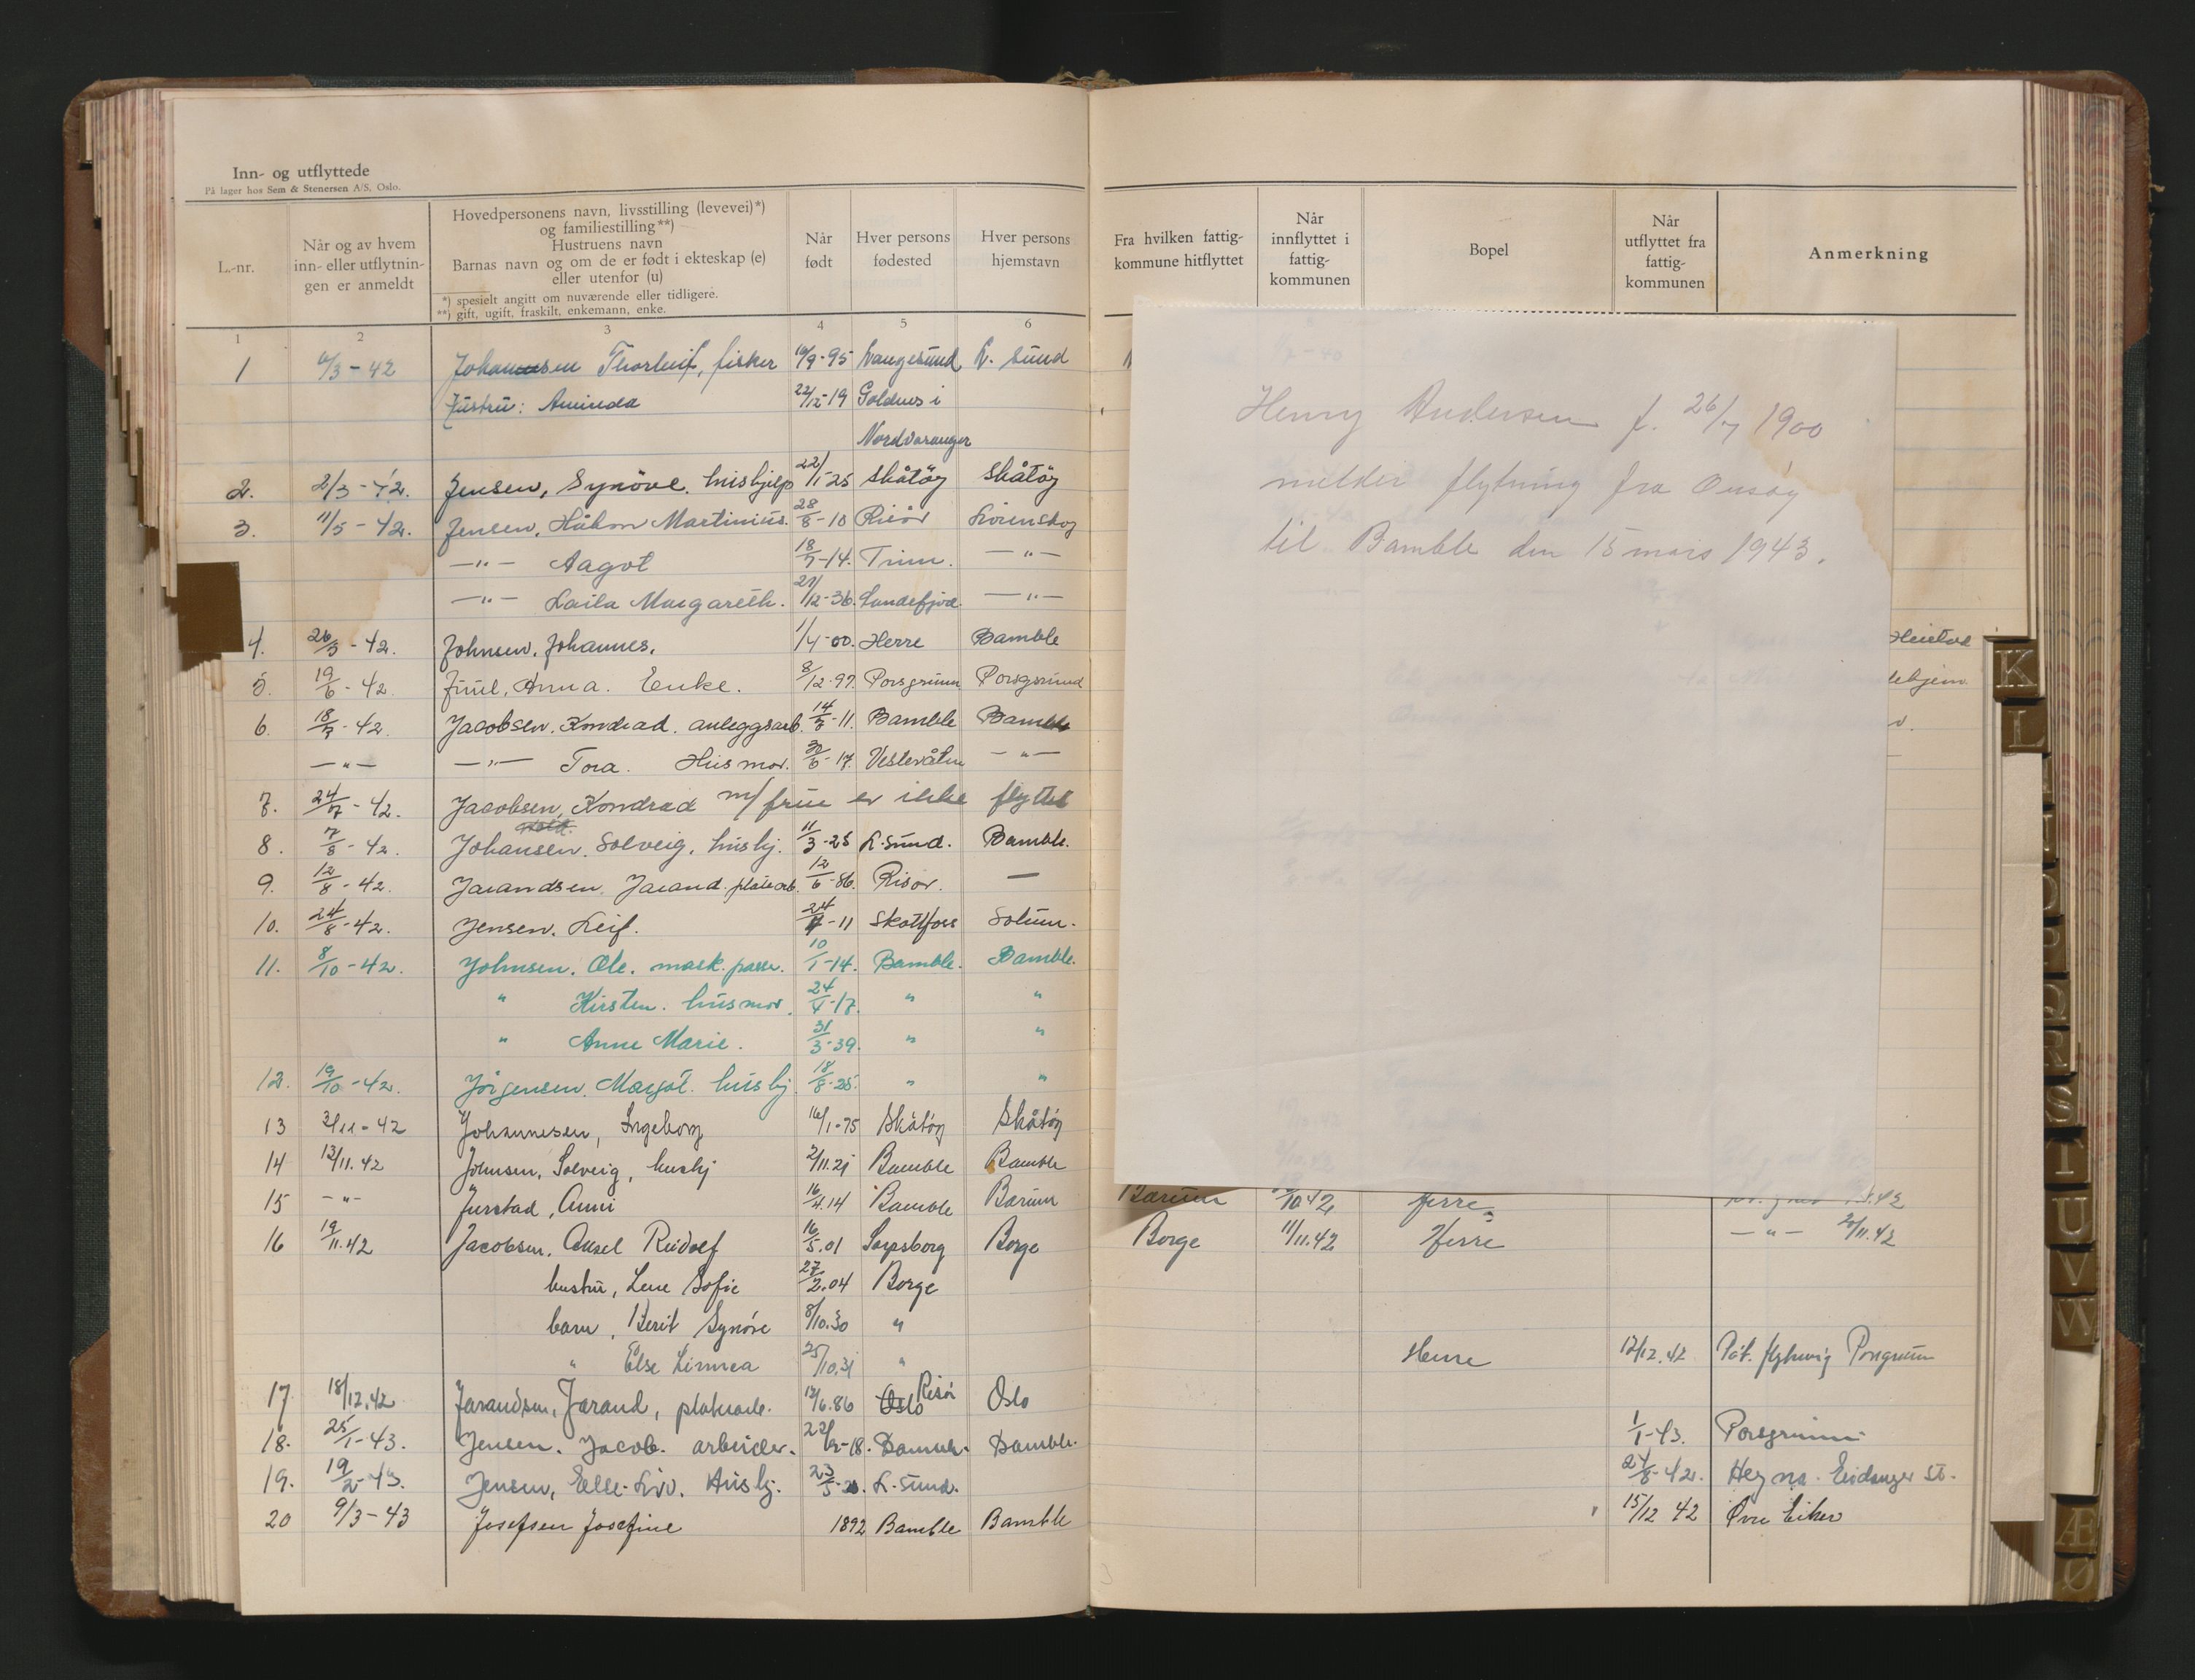 Inn- og utflyttede
På lager hos Sem & Stenersen A/S, Oslo.
L.-nr.
Når og av hvem inn- eller utflytnin-gen er anmeldt
Hovedpersonens navn, livsstilling (levevei)*) og familiestilling**)
Hustruens navn
Barnas navn og om de er født i ekteskap (e) eller utenfor (u)
*) spesielt angitt om nuværende eller tidligere.
**) gift, ugift, fraskilt, enkemann, enke.
Når født
Hver persons fødested
Hver persons hjemstavn
Fra hvilken fattig-kommune hitflyttet
Når innflyttet i fattig-kommunen
Bopel
Når utflyttet fra fattig-kommunen
Anmerkning
1 2 3 4 5 6
1 /3-42 Johannsen Thorleif, fisker 10/9-95 Langesund L. sund
Hustru: Aminda 22/12-19 Goldnes i
Nordvaranger
2. 2/3-42. Jensen, Synöve. hushjelp 22/1-25 Skåtöy Skåtöy
3. 11/5-42. Jensen, Håkon Martinius. 28/8-10 Risör Lörenskog
-"- Aagot 18/7-14. Trim. -"-
-"- Laila Margareth. 21/12-36. Sandefjord. -"-
4. 26/5-42. Johnsen, Johannes. 1/4-00. Herre Bamble
5. 19/6-42. Juul, Anna. Enke. 8/12-97. Porsgrunn Porsgrund
6. 18/7-42. Jacobsen, Kondrad. anleggsarb. 14/7-11. Bamble Bamble
-"- -"- Tora. Husmor. 30/6-17. -"-
7. 24/7-42. Jacobsen, Kondrad m/frue er ikke flyttet
8. 7/8-42. Johansen. Solveig. hushj. 11/3-25 L.sund. Bamble.
9. 12/8-42. Jarandsen, Jarand. platearb. 12/6-86. Risør. —
10. 24/8-42. Jensen. Leif. 24/7-11 Skotfoss Solum.
11. 8/10-42. Johnsen. Ole. mask. passer. 10/1-14. Bamble. Bamble.
" Kirsten. husmor. 24/4-17. " "
" Anne Marie. 31/3-39. " "
12. 19/10-42. Jörgensen. Margot. hushj. 18/8-25. " "
13 3/11-42 Johannesen, Ingeborg 16/1-75 Skåtöy Skåtöy
14 12/11.42 Johnsen, Solveig, hushj 2/11.21 Bamble Bamble
15 -"- Jurstad, Anni 16/4.14 Bamble Bærum Bærum /10 42 Herre
16 19/11.42 Jacobsen. Aksel Rudolf 16/5.01 Sarpsborg Borge Borge 11/11.42 Herre -"- 20/11.42
hustru, Lene Sofie 27/2.04 Borge
barn, Berit Synöve 8/10.30 "
" Else Linnea 25/10.31 " Herre 12/12.42 flytning Porsgrunn
17 18/12.42 Jarandsen, Jarand, platearb. 12/6.86 Oslo Risör Oslo
18. 25/1-43. Jensen. Jacob. arbeider. 22/12-18. Bamble. Bamble. 1/1-43. Porsgrunn
19. 19/2-43. Jensen, Elle-Liv. Hushj. 23/5-20. L.sund. 24/8-42. Heyna. Eidanger st.
20 9/3-43 Josefsen Josefine 1892 Bamble Bamble 15/12 42 Øvre Eiker
Henry Andersen f. 26/7 1900
melder flytning fra Onsøy
til Bamble den 15 mars 1943.
K
L
S
T
U
V
W
Æ
Ø